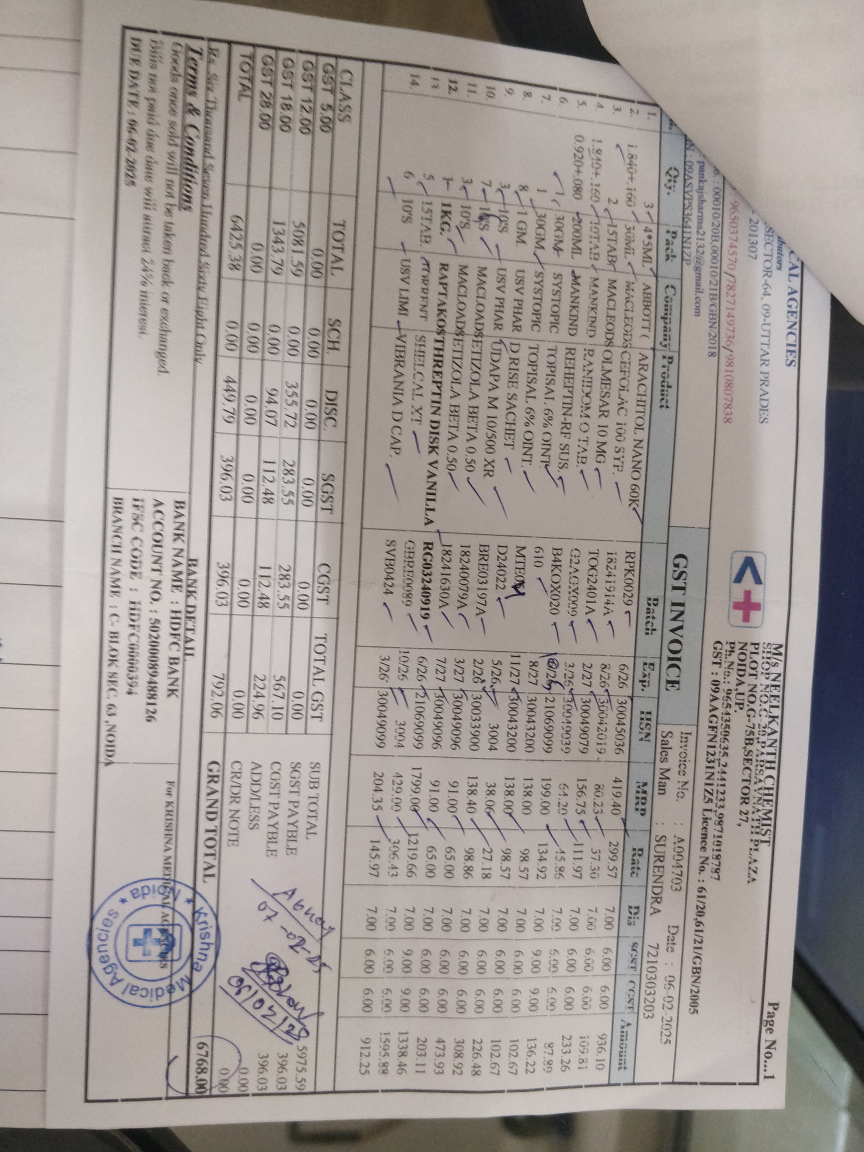 Page No...1
M/s NEELKANTH CHEMIST
SHOP NO.G-20,PARSAVNATH PLAZA
PLOT NO.G-75B,SECTOR 27,
NOIDA,UP.
Ph.No.: 9654350635,2441233,9871018787
GST : 09AAGFN1231N1Z5 Licence No. : 61/20,61/21/GBN/2005
CAL AGENCIES
SECTOR-64, 09-UTTAR PRADES
- 201307
9650374570 /7827149736/9810807838
.: 00010/20B,00010/21B/GBN/2018
pankajsharma2132@gmail.com
N : 09ASVPS3641N1ZP
GST INVOICE
Invoice No. : A004703 Date : 06-02-2025
Sales Man : SURENDRA 7210303203
Qty. Pack Company Product Batch Exp. HSN MRP Rate Dis SGST CGST Amount
1. 3 4*5ML ABBOTT ( ARACHITOL NANO 60K RPK0029 6/26 30045036 419.40 299.57 7.00 6.00 6.00 936.10
2. 1.840+.160 30ML MACLEODS CEFOLAC 100 SYP. 18241914A 8/26 30042019 80.23 57.30 7.00 6.00 6.00 109.81
3. 2 15TAB MACLEODS OLMESAR 10 MG TOG2401A 2/27 30049079 156.75 111.97 7.00 6.00 6.00 233.26
4. 1.840+.160 10TAB MANKIND RANIDOM O TAB. G2AGX009 3/26 30049039 64.20 45.86 7.00 6.00 6.00 87.89
5. 0.920+.080 200ML MANKIND REHEPTIN-RF SUS. B4KOX020 21069099 199.00 134.92 7.00 9.00 9.00 136.22
6. 1 30GM SYSTOPIC TOPISAL 6% OINT. 610 8/27 30043200 138.00 98.57 7.00 6.00 6.00 102.67
7. 1 30GM SYSTOPIC TOPISAL 6% OINT. 11/27 30043200 138.00 98.57 7.00 6.00 6.00 102.67
8. 8 1 GM. USV PHAR D RISE SACHET D24022 5/26 3004 38.06 27.18 7.00 6.00 6.00 226.48
9. 3 10'S USV PHAR UDAPA M 10/500 XR BRE03197A 2/26 30033900 138.40 98.86 7.00 6.00 6.00 308.92
10. 7 10'S MACLOADS ETIZOLA BETA 0.50 18240079A 3/27 30049096 91.00 65.00 7.00 6.00 6.00 473.93
11. 3 10'S MACLOADS ETIZOLA BETA 0.50 18241630A 7/27 30049096 91.00 65.00 7.00 6.00 6.00 203.11
12. 1 1KG. RAPTAKOS THREPTIN DISK VANILLA RG03240919 6/26 21069099 1799.00 1219.66 7.00 9.00 9.00 1338.46
13. 5 15TAB. TORRENT SHELCAL XT GBRE0089 10/26 3004 429.00 306.43 7.00 6.00 6.00 1595.88
14. 6 10'S USV LIMI VIBRANIA D CAP. SVB0424 3/26 30049099 204.35 145.97 7.00 6.00 6.00 912.25
CLASS TOTAL SCH. DISC. SGST CGST TOTAL GST
GST 5.00 0.00 0.00 0.00 0.00 0.00 0.00
GST 12.00 5081.59 0.00 355.72 283.55 283.55 567.10
GST 18.00 1343.79 0.00 94.07 112.48 112.48 224.96
GST 28.00 0.00 0.00 0.00 0.00 0.00 0.00
TOTAL 6425.38 0.00 449.79 396.03 396.03 792.06
SUB TOTAL 5975.59
SGST PAYBLE 396.03
CGST PAYBLE 396.03
ADD/LESS 0.00
CR/DR NOTE 0.00
GRAND TOTAL 6768.00
Rs. Six Thousand Seven Hundred Sixty Eight Only
Terms & Conditions
Goods once sold will not be taken back or exchanged.
Bills not paid due date will attract 24% interest.
DUE DATE : 06-02-2025
BANK DETAIL
BANK NAME : HDFC BANK
ACCOUNT NO. : 50200089488126
IFSC CODE : HDFC0000394
BRANCH NAME : C- BLOK SEC. 63 ,NOIDA
For KRISHNA MEDICAL AGENCIES
Krishna Medical Agencies
Noida